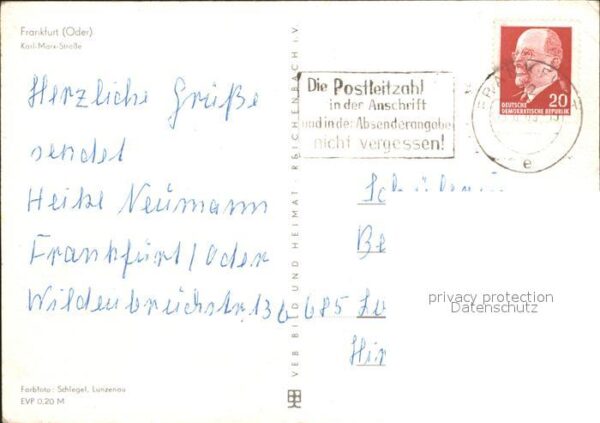 Frankfurt (Oder)
Karl-Marx-Straße
Herzliche Grüße
sendet
Heike Neumann
Frankfurt/Oder
Wildenbruchstr. 36
VEB BILD UND HEIMAT REICHENBACH i. V.
Die Postleitzahl
in der Anschrift
und in der Absenderangabe
nicht vergessen!
DEUTSCHE
DEMOKRATISCHE REPUBLIK
20
e
Be
685 Lo
Hir
privacy protection
Datenschutz
Farbfoto: Schlegel, Lunzenau
EVP 0,20 M